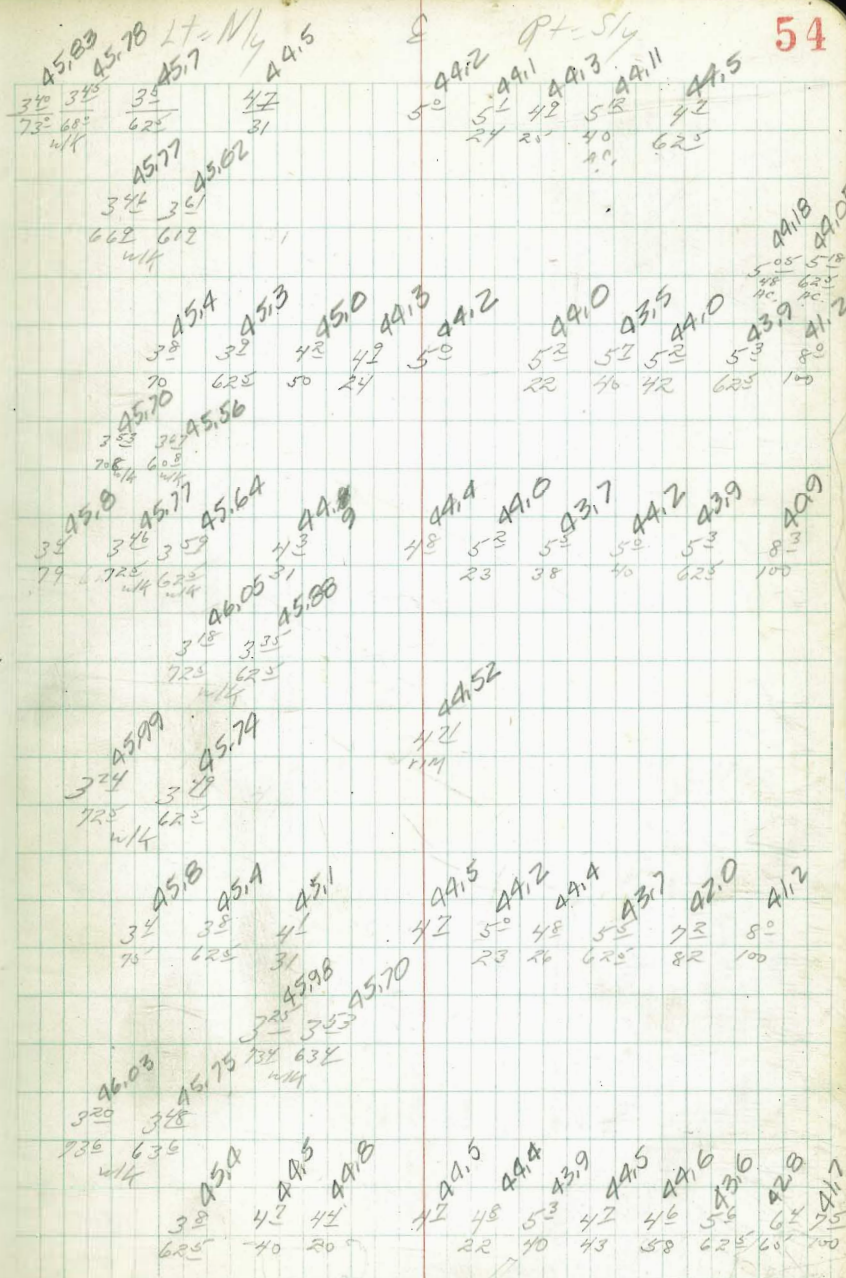 Lt = N'ly ℄ Rt = S'ly 54
45.83 45.78 45.7 44.5 44.2 44.1 44.3 44.11 44.5
3.40 3.45 3.5 4.7 5.0 5.1 4.9 5.12 4.7
73.0 68.0 62.5 31 24 25 40 62.5
wlk A.C.
45.77 45.62
3.46 3.61
66.9 61.9
wlk
44.18 44.05
5.05 5.18
48 62.5
A.C. A.C.
45.4 45.3 45.0 44.3 44.2 44.0 43.5 44.0 43.9 41.2
3.8 3.9 4.2 4.9 5.0 5.2 5.7 5.2 5.3 8.0
70 62.5 50 24 22 40 42 62.5 100
45.70 45.56
3.53 3.67
70.8 60.8
wlk wlk
45.8 45.77 45.64 44.9 44.4 44.0 43.7 44.2 43.9 40.9
3.4 3.46 3.59 4.3 4.8 5.2 5.5 5.0 5.3 8.3
79 72.5 62.5 31 23 38 40 62.5 100
wlk wlk
46.05 45.88
3.18 3.35
72.5 62.5
wlk
44.52
4.71
rim
45.99 45.74
3.24 3.49
72.5 62.5
wlk
45.8 45.4 45.1 44.5 44.2 44.4 43.7 42.0 41.2
3.4 3.8 4.1 4.7 5.0 4.8 5.5 7.2 8.0
75 62.5 31 23 26 62.5 82 100
45.98 45.70
3.25 3.53
73.4 63.4
wlk
46.03 45.75
3.20 3.48
73.6 63.6
wlk
45.4 44.5 44.8 44.5 44.4 43.9 44.5 44.6 43.6 42.8 41.7
3.8 4.7 4.4 4.7 4.8 5.3 4.7 4.6 5.6 6.4 7.5
62.5 40 20 22 40 43 58 62.5 100